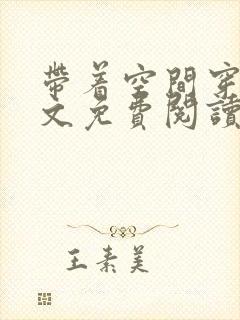 帶着空間穿
文免費閱讀
王素美